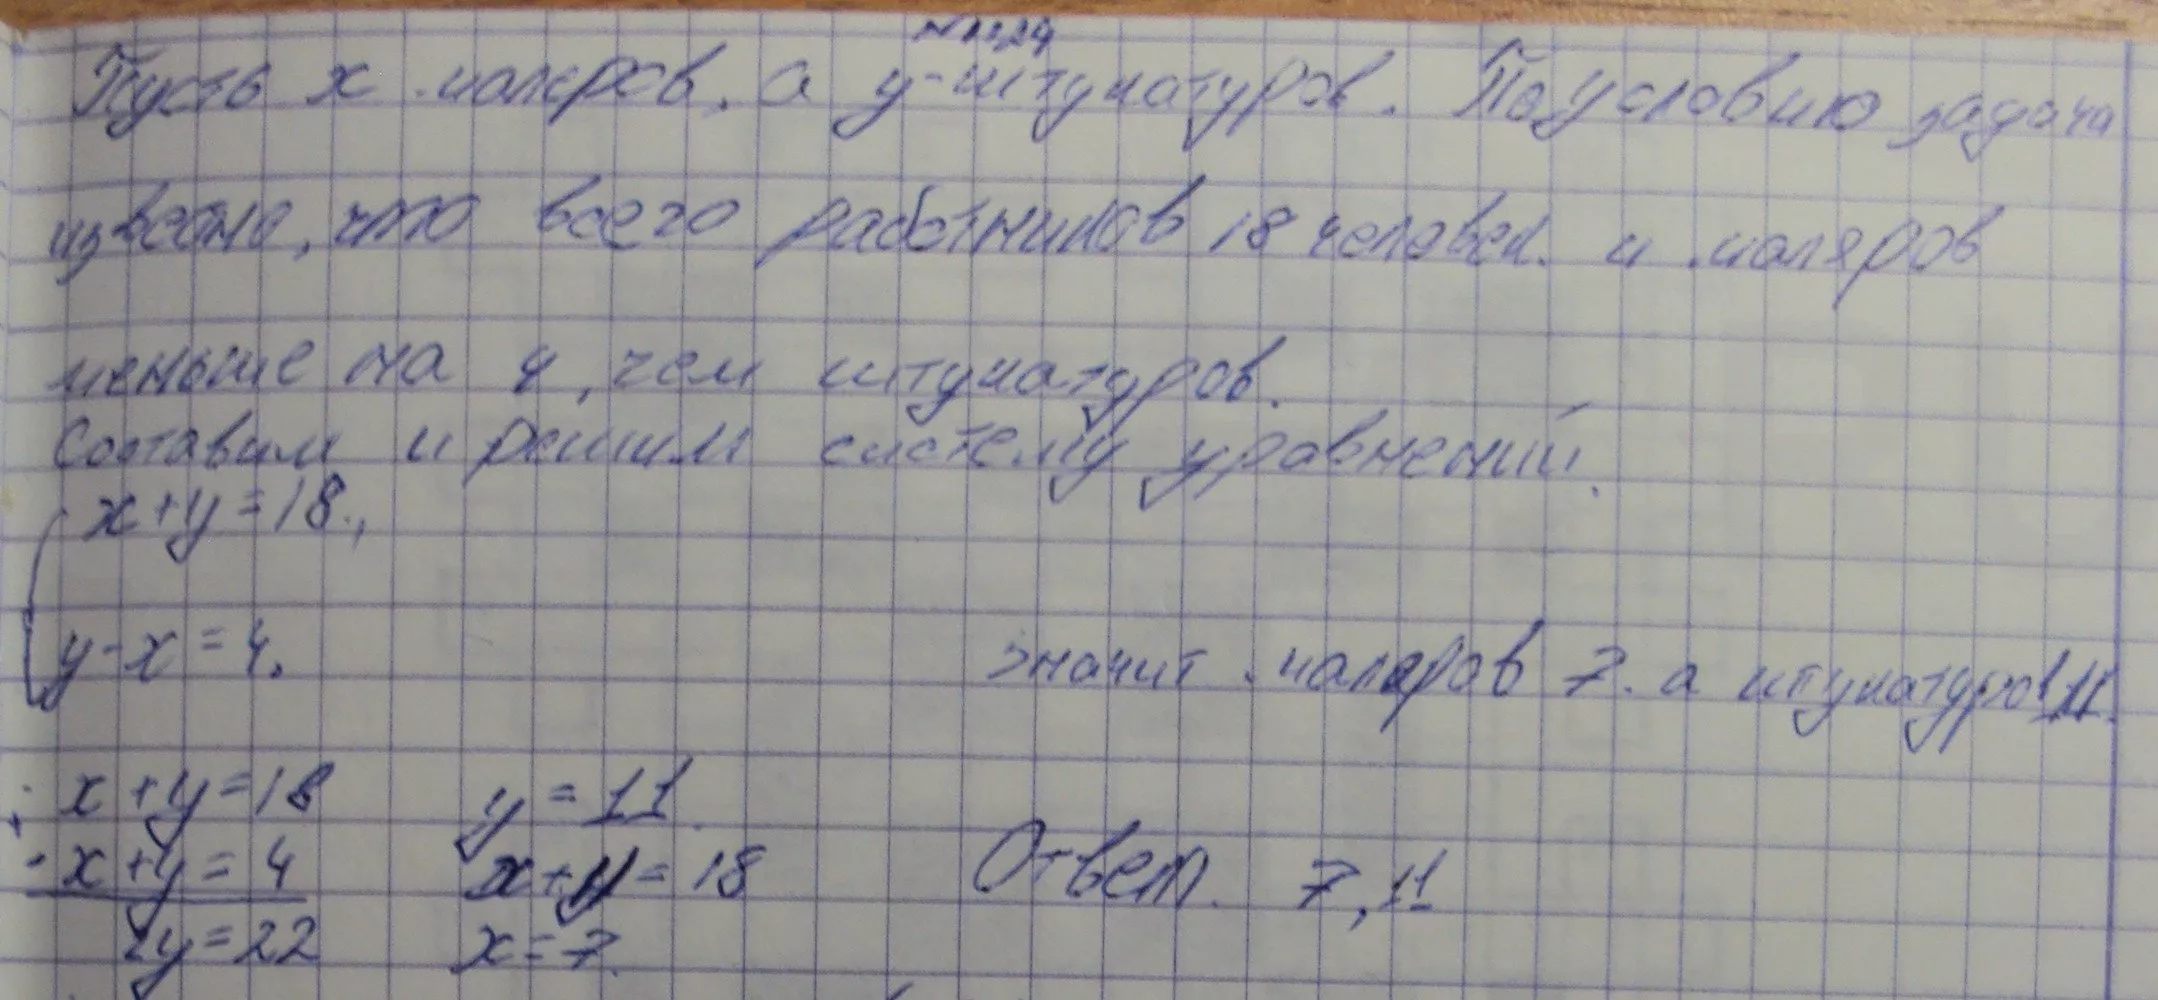 Пусть х маляров, а у-штукатуров. По условию задача
известно, что всего работников 18 человек и маляров
меньше на 4, чем штукатуров.
Составим и решим систему уравнений.
х+у=18,
у-х=4.
значит маляров 7, а штукатуров 11.
х+у=18
-х+у=4
2у=22
у=11
х+11=18
х=7
Ответ. 7, 11